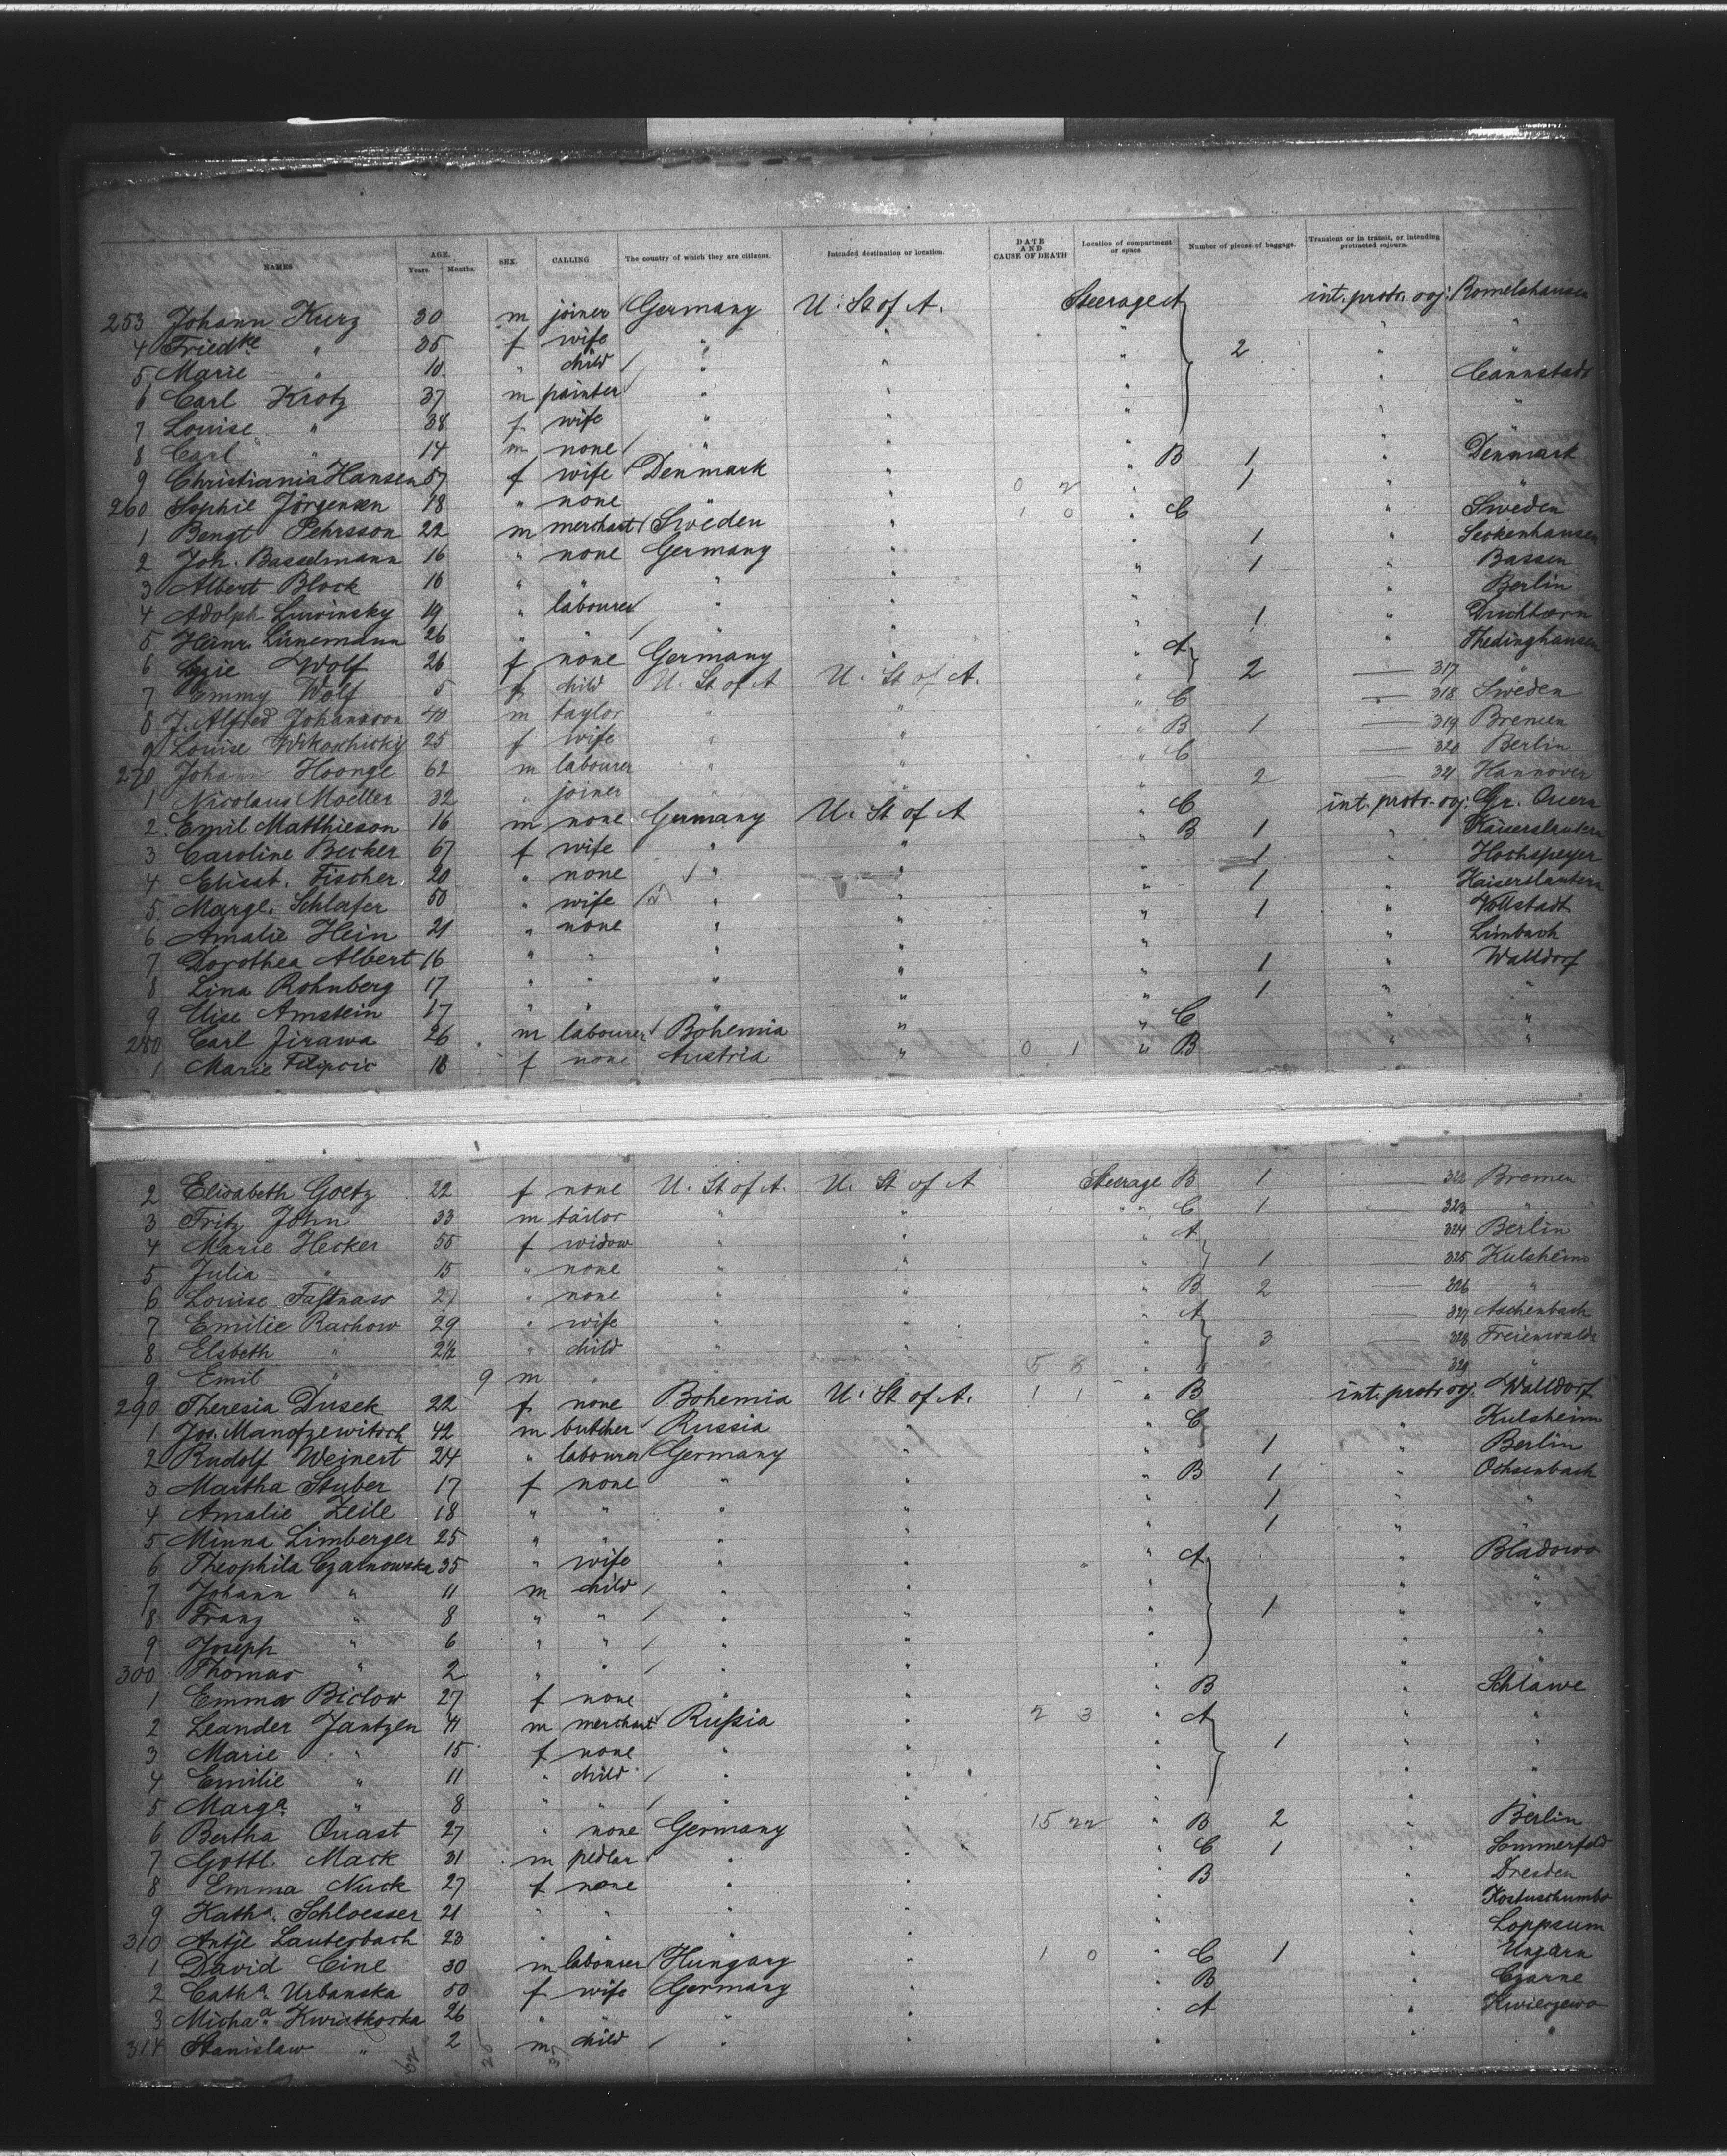 NAMES AGE. Years. Months. SEX. CALLING The country of which they are citizens. Intended destination or location. DATE AND CAUSE OF DEATH Location of compartment or space Number of pieces of baggage. Transient or in transit, or intending protracted sojourn.
253 Johann Kurz 30 m joiner Germany U. St of A. Steerage A int. protr. soj. Romelshausen
4 Friedke " 35 f wife " " " 2 " "
5 Marie " 10 " child " " " " "
6 Carl Krotz 37 m painter " " " " Cannstadt
7 Louise " 38 f wife " " " " "
8 Carl " 14 m none " " " "
9 Christiania Hansen 57 f wife Denmark " " B 1 " Denmark
260 Sophie Jörgensen 18 " none " " 0 2 " 1 " "
1 Bengt Pehrsson 22 m merchant Sweden " 1 0 " C " Sweden
2 Joh. Basselmann 16 " none Germany " " 1 " Seckenhausen
3 Albert Block 16 " " " " " 1 " Bassen
4 Adolph Luwinsky 19 " labourer " " " " Berlin
5 Heinr. Lünemann 26 " " " " " 1 "
6 Wolf 26 f none Germany " " A 2 " Thedinghausen
7 Emmy Wolf 5 f child U. St of A U. St of A. " 317 "
8 J. Alfred Johansson 40 m taylor " " " C 318 Sweden
9 Louise 25 f wife " " " B 1 319 Bremen
270 Johann Hoonge 62 m labourer " " " C 320 Berlin
1 Nicolaus Moeller 32 " joiner " " " 2 321 Hannover
2 Emil Matthieson 16 m none Germany U. St of A " C int. protr. soj. Gr. Quern
3 Caroline Becker 67 f wife " " " B 1 " Kaiserslautern
4 Elisabt. Fischer 20 " none " " " 1 " Hochspeyer
5 Margt. Schlafer 50 " wife " " " 1 " Kaiserslautern
6 Amalie Hein 21 " none " " " 1 "
7 Dorothea Albert 16 " " " " " " Limbach
8 Lina Rohnberg 17 " " " " " 1 " Walldorf
9 Elise Amstein 17 " " " " " 1 " "
280 Carl Jirawa 26 m labourer Bohemia " " C " "
1 Marie Filipcic 18 f none Austria " 0 1 " B " "
2 Elisabeth Goetz 22 f none U. St of A. U. St of A Steerage B 1 322 Bremen
3 Fritz John 33 m tailor " " " C 1 323 "
4 Marie Hecker 55 f widow " " " A 324 Berlin
5 Julia " 15 " none " " " 1 325 Kulsheim
6 Louise 27 " none " " " B 2 326 "
7 Emilie Rachow 29 " wife " " " A 327 Aschenbach
8 Elsbeth " 2½ " child " " " 3 328 Freienwalde
9 Emil " 9 m " " " 5 8 " 329 "
290 Theresia Dusek 22 f none Bohemia U. St of A. 1 1 " B int. protr. soj. Walldorf
1 Jos. Manofzewitsch 42 m butcher Russia " " C " Kulsheim
2 Rudolf Weinert 24 " labourer Germany " " 1 " Berlin
3 Martha Stuber 17 f none " " " B 1 " Ochsenbach
4 Amalie Zeile 18 " " " " " 1 " "
5 Minna Limberger 25 " " " " " 1 " "
6 Theophila Czarnowska 35 " wife " " " A " Bladowo
7 Johann " 11 m child " " " " "
8 Franz " 8 " " " " " 1 " "
9 Joseph " 6 " " " " " " "
300 Thomas " 2 " " " " " " "
1 Emma Biclow 27 f none " " " B " Schlawe
2 Leander Jantzen 41 m merchant Rußia " 2 3 " A " "
3 Marie " 15 f none " " " 1 " "
4 Emilie " 11 " child " " " " "
5 Marga. " 8 " " " " " "
6 Bertha Quast 27 " none Germany " 15 22 " B 2 " Berlin
7 Gottl. Mack 31 m pedlar " " " C 1 " Sommerfeld
8 Emma Nuck 27 f none " " " B " Dresden
9 Katha. Schloesser 21 " " " " " "
310 Antje Lauterbach 23 " " " " " " Loppsum
1 David Cine 30 m labourer Hungary " 1 0 " C 1 " Ungarn
2 Catha. Urbanska 50 f wife Germany " " B " Czarne
3 Micha.a Kwiatkoska 26 " " " " " A "
314 Stanislaw " 2 m child " " " " "